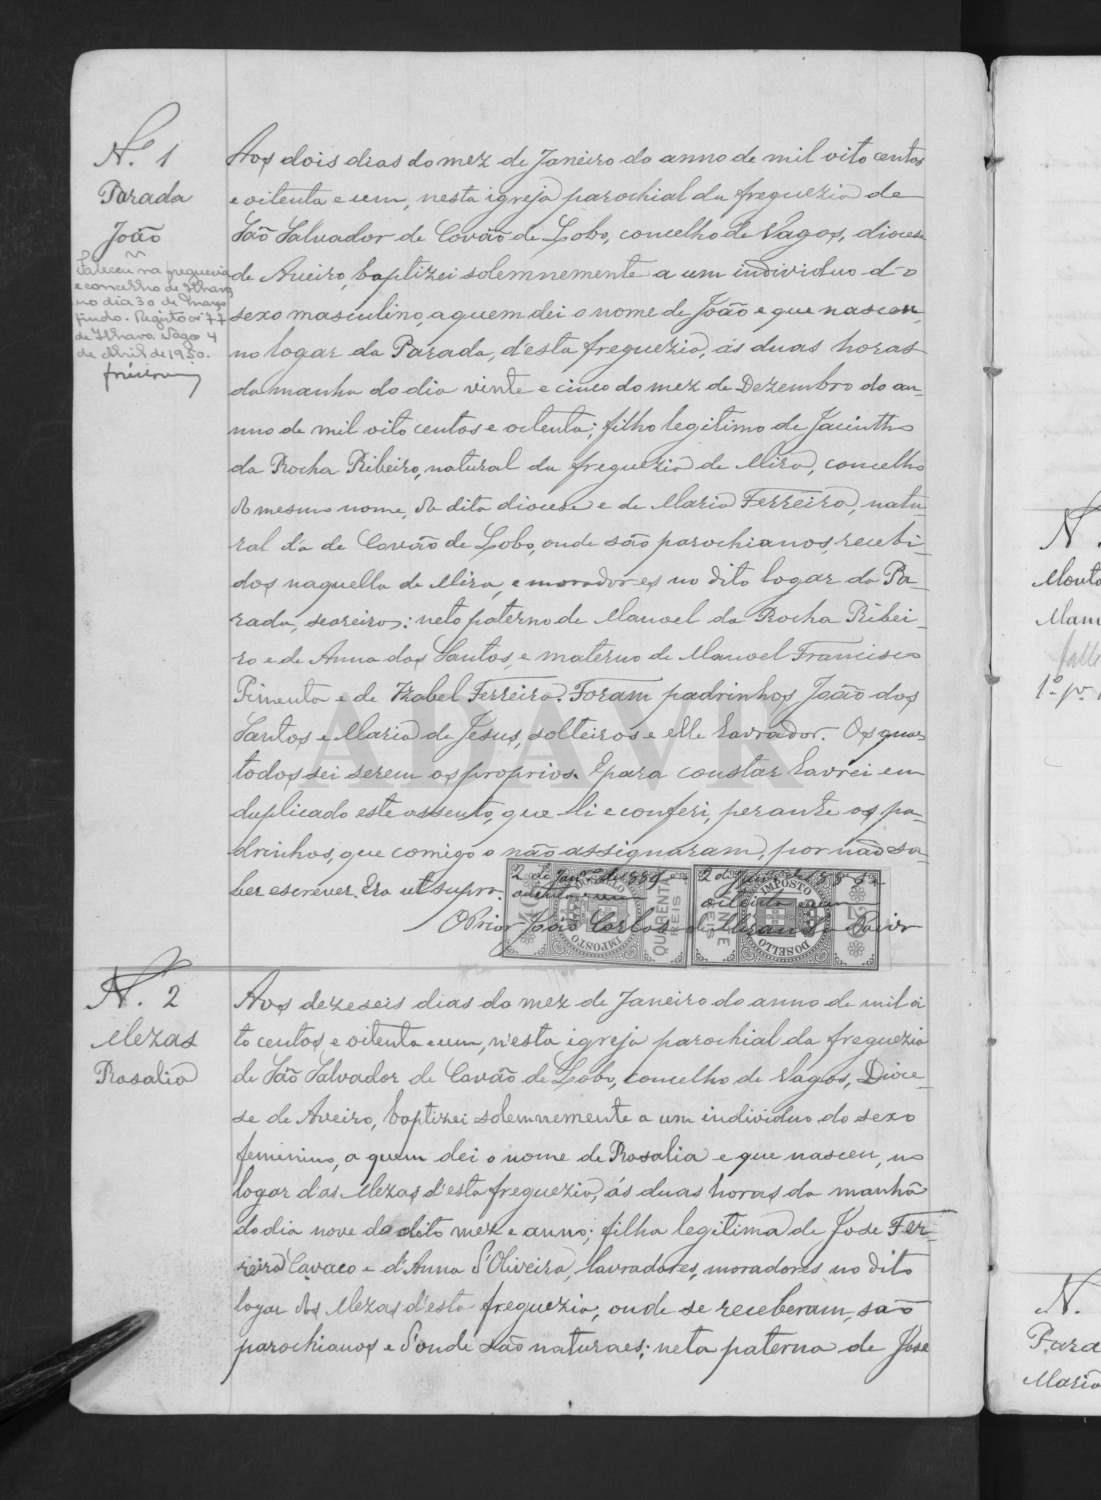 N.º 1
Parada
João
Faleceu na freguesia
e concelho de Ilhavo
no dia 30 de março
findo. Registo nº 77
de Ilhavo. Vagos 4
de Abril de 1950.
Aos dois dias do mez de Janeiro do anno de mil oito centos
e oitenta e um, nesta igreja parochial da freguezia de
São Salvador de Covão de Lobo, concelho de Vagos, diocese
de Aveiro, baptizei solemnemente a um individuo do
sexo masculino, a quem dei o nome de João e que nasceu,
no logar da Parada, d'esta freguezia, ás duas horas
da manha do dia vinte e cinco do mez de Dezembro do an-
nno de mil oito centos e oitenta; filho legitimo de Jacintho
da Rocha Ribeiro, natural da freguezia de Mira, concelho
do mesmo nome, da dita diocese e de Maria Ferreira, natu-
ral d'a de Covão de Lobo, onde são parochianos, recebi-
dos naquella de Mira, e moradores no dito logar da Pa-
rada, seareiros: neto paterno de Manoel da Rocha Ribei-
ro e de Anna dos Santos, e materno de Manoel Francisco
Pimenta e de Izabel Ferreira. Foram padrinhos João dos
Santos e Maria de Jesus, solteiros e elle lavrador. Os quaes
todos sei serem os proprios. E para constar lavrei em
duplicado este assento, que li e conferi, perante os pa-
drinhos, que comigo o não assignaram, por não sa-
ber escrever. Era ut supra.
2 de Janº de 1881
oitenta e um
2 de Janº de 188
oitenta e um
QUARENTA REIS
IMPOSTO DO SELLO
IMPOSTO DO SELLO
O Prior João Carlos de
ADAVR
N. 2
Mezas
Rosalia
Aos dezeseis dias do mez de Janeiro do anno de mil oi
to centos e oitenta e um, n'esta igreja parochial da freguezia
de São Salvador de Covão de Lobo, concelho de Vagos, Dioce-
se de Aveiro, baptizei solemnemente a um individuo do sexo
feminino, a quem dei o nome de Rosalia e que nasceu, no
logar d'as Mezas d'esta freguezia, ás duas horas da manhã
do dia nove do dito mez e anno; filha legitima de Jose Fer-
reira Cavaco e d'Anna d'Oliveira, lavradores, moradores no dito
logar das Mezas d'esta freguezia, onde se receberam, são
parochianos e d'onde são naturaes; neta paterna de Jose
N.
N.
Maria